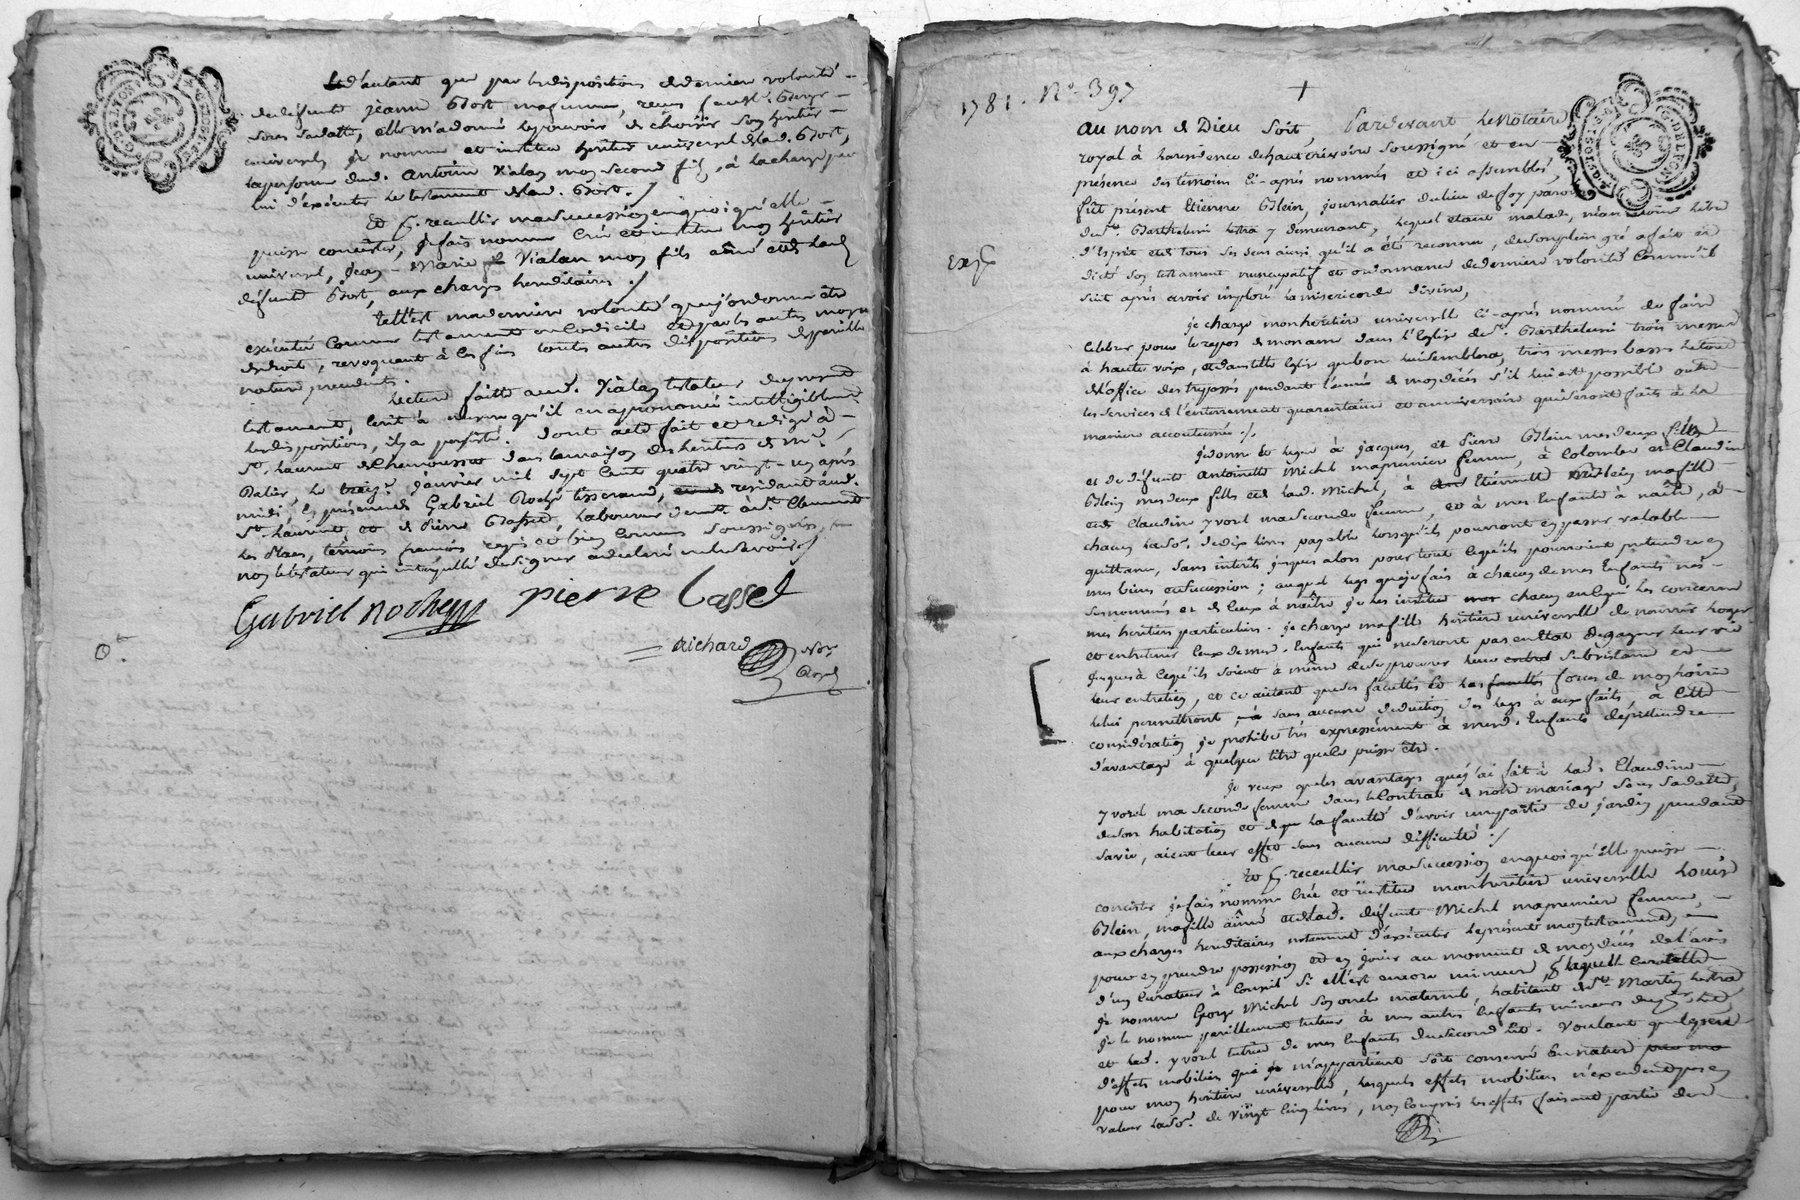 Et d'autant que par les dispositions de derniere volonté
de defunte Jeanne Bort ma femme, recus Geneyt. George
sous sa datte, elle m'a donné le pouvoir de choisir son heritier
universel, je nomme et institue heritier universel de lad. Bort,
la personne dud. Antoine Vialan mon second fils, à la charge par
lui d'exécuter le testament de lad. Bort. /
Et p. recueillir ma succession en quoi qu'elle
puisse consister, je fais nomme crée et institue mon heritier
universel, Jean-Marie Vialan mon fils aîné et de lad.
défunte Bort, aux charges hereditaires. /
Telle est ma derniere volonté que j'ordonne être
exécutée comme testament ou codicile et par les autres moyens
de droit, revoquant à ces fins toutes autres dispositions de pareille
nature precedentes.
Lecture faitte aud. Vialan testateur du present
testament, écrit à mesure qu'il en a prononcé intelligiblement
les dispositions, il y a persisté. dont acte fait et redigé à
St. Laurent de Chamousset dans la maison des heritiers de Mr.
Dalier, le treize janvier mil sept cents quatre vingt-un après
midi, en présence de Gabriel Roche tisserand, residant aud.
St. Laurent, et de Pierre Bassed, laboureur demt. à St. Clement
les Places, témoins francois, requis et bien connus soussignés,
non le testateur qui interpellé de signer a declaré ne le savoir /
Gabriel Roche pierre Basset
Richard
Nore.
Royal
1781. No. 397
+
Au nom de Dieu soit, Pardevant le Notaire
royal à la residence de hauterivoire soussigné et en
présence des temoins ci-après nommés et ici assemblés,
fût présent Etienne Blein, journalier du lieu de foy paroisse
de St. Barthelemi lestra y demeurant, lequel étant malade, néanmoins libre
d'esprit et de tous ses sens ainsi qu'il a été reconnu, de son plein gré a fait et
dicté son testament nuncupatif et ordonnance de derniere volonté comme s'en
suit après avoir imploré la misericorde divine,
Exp.
je charge mon heritière universelle ci-après nommée de faire
celebrer pour le repos de mon ame dans l'Eglise de St. Barthelemi trois messes
à haute voix, et dans telle Eglise que bon lui semblera, trois messes basses le tout
de l'office des trepassés pendant l'année de mon décés s'il lui est possible outre
les services de l'enterrement quarantaine et anniversaire qui seront faits à la
maniere accoutumée. /
je donne et legue à jacques, et Pierre Blein mes deux fils
et de défunte Antoinette Michel ma premiere femme, à Colombe et Claudine
Blein mes deux filles et de lad. Michel, à Etiennette Blein ma fille
et de Claudine yvorel ma seconde femme, et à mes Enfants à naître, à
chacun la so. de dix livres payable lorsqu'ils pourront en passer valable
quittance, sans interêts jusques alors pour tout ce qu'ils pourroient pretendre en
mes biens et succession; auquel legs que je fais à chacun de mes Enfants nés
susnommés et de ceux à naître je les institue chacun en ce qui les concerne
mes heritiers particuliers. je charge ma fille heritière universelle de nourrir loger
et entretenir ceux de mesd. Enfants qui ne seront pas en état de gagner leur vie
jusques à ce qu'ils soient à même de se procurer leur subsistance et
leur entretien, et ce autant que les facultés et les forces de mon hoirie
le lui permettront, sans aucune deduction des legs à eux faits, à cette
considération je prohibe très expressement à mesd. Enfants de prétendre
d'avantage à quelque titre que ce puisse être.
je veux que les avantages que j'ai fait à lad. Claudine
yvorel ma seconde femme dans le Contrat de notre mariage sous sa datte,
de son habitation et de la faculté d'avoir une partie de jardin pendant
sa vie, aient leur effet sans aucune difficulté. /
Et p. recueillir ma succession en quoi qu'elle puisse
consister je fais nomme crée et institue mon heritière universelle Louise
Blein, ma fille aînée et de lad. défunte Michel ma premiere femme,
aux charges hereditaires notamment d'exécuter le présent mon testament,
pour en prendre possession et en jouir au moment de mon décés de l'avis
d'un Curateur à Conseil si elle est encore mineure p. laquelle curatelle
je nomme George Michel son oncle maternel, habitant de St. Martin lestra,
je le nomme pareillement tuteur à mes autres Enfants mineurs du premier lit
et lad. yvorel tutrice de mes Enfants du second lit. Voulant que le peu
d'effets mobiliers qui m'appartient soit conservé en nature
pour mon heritière universelle, lesquels effets mobiliers n'excedent pas en
valeur la so. de vingt cinq livres, non compris les effets faisant partie de